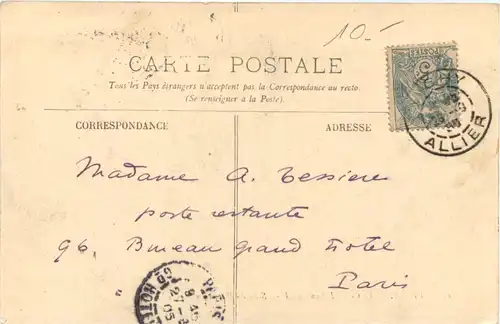 10.-
CARTE POSTALE
Tous les Pays étrangers n'acceptent pas la Correspondance au recto.
(Se renseigner à la Poste).
CORRESPONDANCE
ADRESSE
POSTES
ALLIER
Madame A. Tessiere
poste restante
96, Bureau grand Hotel
Paris
PARIS
HOTEL